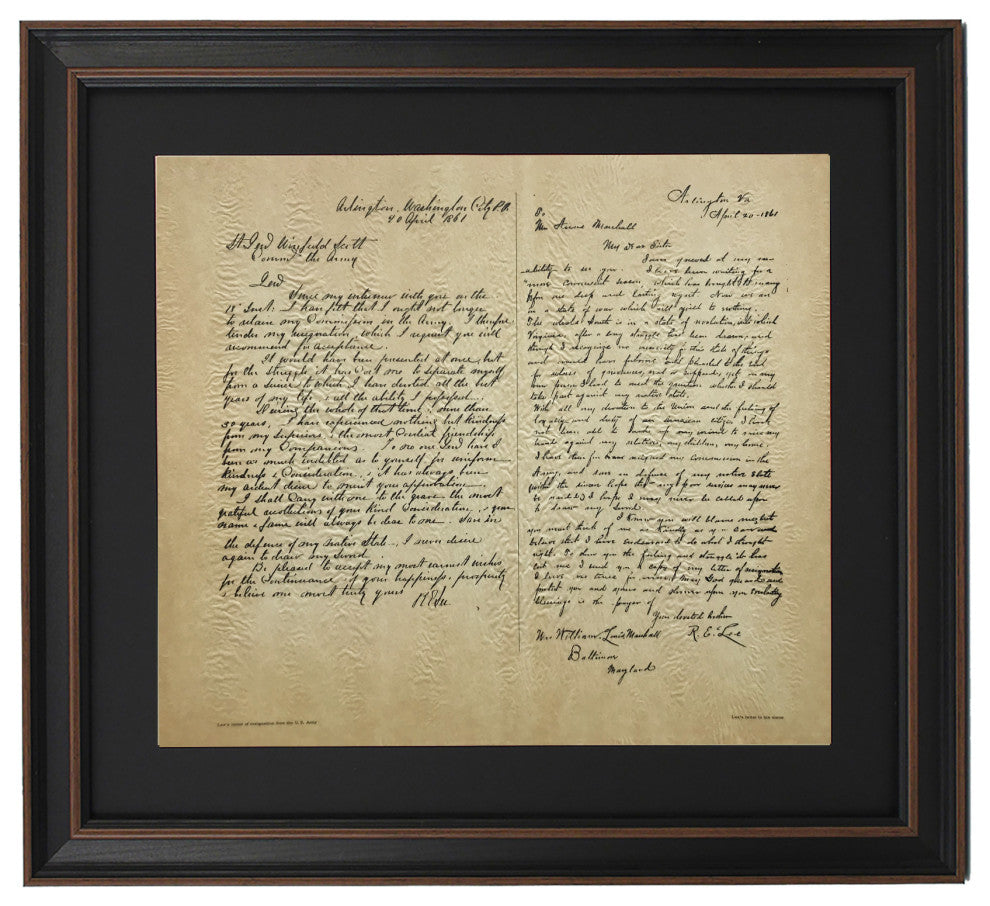 Arlington, Washington City P.O.
20 April 1861
Lt. Genl Winfield Scott
Commd the Army
Genl
Since my interview with you on the
18th Inst: I have felt that I ought not longer
to retain my Commission in the Army. I therefore
tender my resignation, which I request you will
recommend for acceptance.
It would have been presented at once, but
for the struggle it has cost me to separate myself
from a service to which I have devoted all the best
years of my life, & all the ability I possessed.
During the whole of that time, more than
30 years, I have experienced nothing but kindness
from my superiors, & the most cordial friendship
from my Companions. To no one Genl have I
been as much indebted as to yourself for uniform
kindness & Consideration, & it has always been
my ardent desire to merit your approbation.
I shall carry with me to the grave the most
grateful recollections of your kind Consideration, & your
name & fame will always be dear to me. Save in
the defense of my native State, I never desire
again to draw my sword.
Be pleased to accept my most earnest wishes
for the Continuance of your happiness & prosperity
& believe me most truly yours
R E Lee
Lee's letter of resignation from the U. S. Army
Arlington Va
April 20-1861
To
Mrs Anne Marshall
My Dear Sister
I am grieved at my in-
ability to see you. I have been waiting for a
"more convenient season" which has brought to many
before me deep and lasting regret. Now we are
in a state of war which will yield to nothing.
The whole South is in a state of revolution, into which
Virginia after a long struggle has been drawn, and
though I recognize no necessity for this state of things
and would have forborne and pleaded to the end
for redress of grievances, real or supposed, yet in my
own person I had to meet the question whether I should
take part against my native state.
With all my devotion to the Union and the feeling of
loyalty and duty of an American citizen, I have
not been able to make up my mind to raise my
hand against my relatives, my children, my home.
I have therefore resigned my commission in the
Army, and save in defense of my native State
with the sincere hope that my poor services may never
be needed, I hope I may never be called upon
to draw my sword.
I know you will blame me, but
you must think of me as kindly as you can and
believe that I have endeavored to do what I thought
right. To show you the feeling and struggle it has
cost me I send you a copy of my letter of resignation
I have no time for more. May God guard and
protect you and yours and shower upon you everlasting
blessings is the prayer of
Your devoted brother
R. E. Lee
Mrs William Louis Marshall
Baltimore
Maryland
Lee's letter to his sister